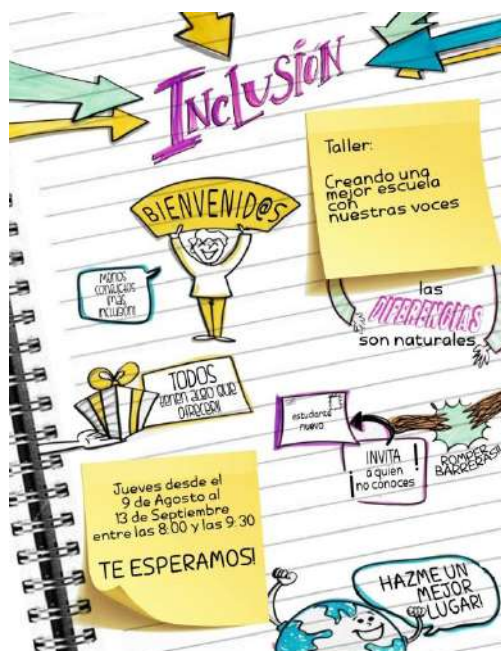 INCLUSIÓN
Taller:
Creando una
mejor escuela
con
nuestras voces
BIENVENID@S
MENOS
CONFLICTOS
¡MÁS
INCLUSIÓN!
las
DIFERENCIAS
son naturales
TODOS
tienen algo que
OFRECER!!
estudiante
nuevo
¡INVITA
a quien
no conoces!
ROMPER
BARRERAS!!
Jueves desde el
9 de Agosto al
13 de Septiembre
entre las 8:00 y las 9:30
TE ESPERAMOS!
HAZME UN
MEJOR
LUGAR!